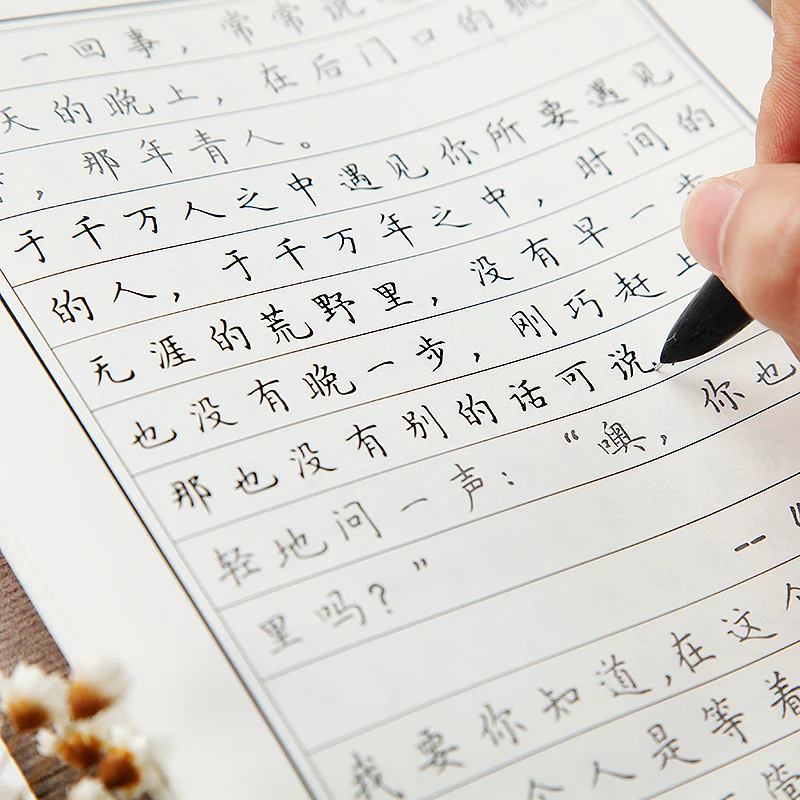 一回事，常常说
天的晚上，在后门口的桃
，那年青人。
于千万人之中遇见你所要遇见
的人，于千万年之中，时间的
无涯的荒野里，没有早一步
也没有晚一步，刚巧赶上
那也没有别的话可说
轻地问一声：“噢，你也
里吗？”
--“
我要你知道，在这个
个人是等着
管